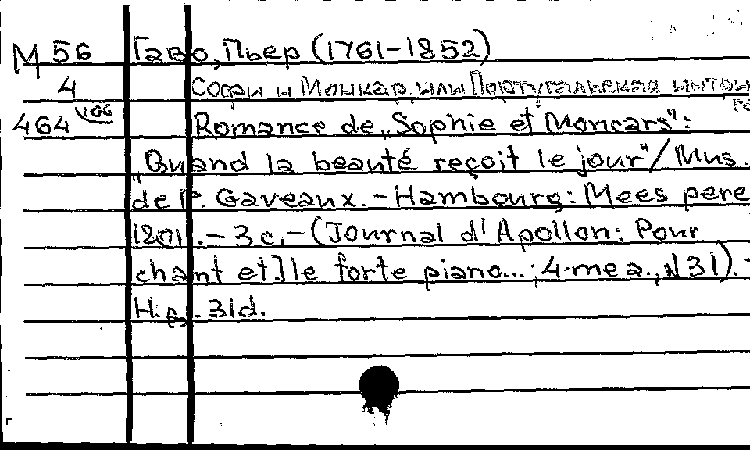 М 56 Гаво, Пьер (1761-1852)
4 Софи и Монкар, или Португальская интри
464 Romance de „Sophie et Moncars":
„Quand la beauté reçoit le jour"/Mus.
de P. Gaveaux. - Hambourg: Mees pere
1801. - 3 с. - (Journal d'Apollon: Pour
chant et] le forte piano...; 4-me a., N 31). -
Н. д. 31d.